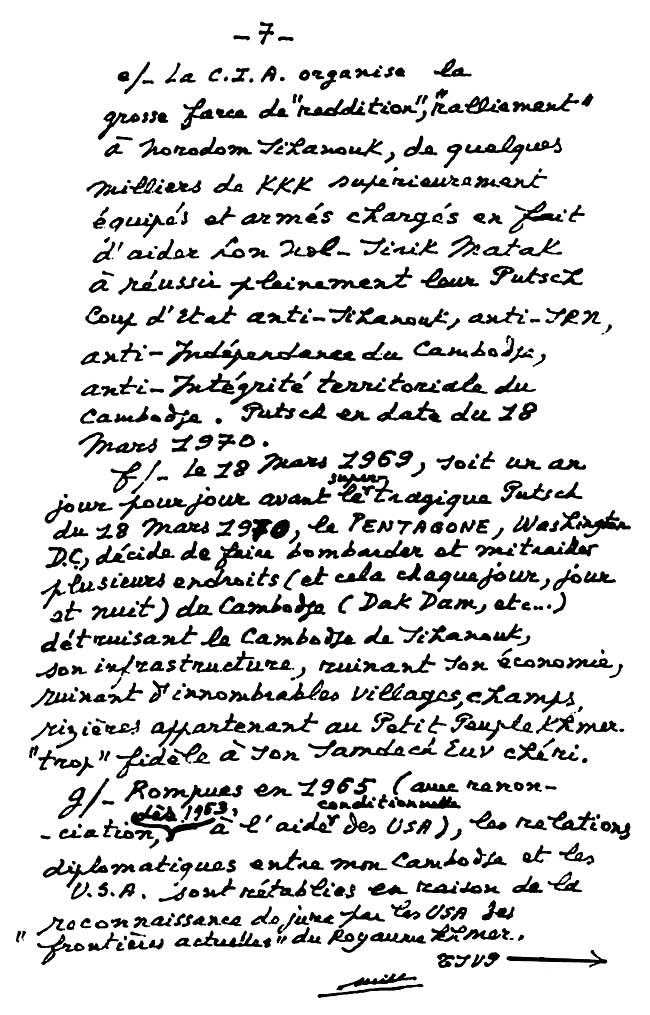 - 7 -
e/- La C.I.A. organise la
grosse farce de "reddition", "ralliement"
à Norodom Sihanouk, de quelques
milliers de KKK supérieurement
équipés et armés chargés en fait
d'aider Lon Nol - Sirik Matak
à réussir pleinement leur Putsch
Coup d'Etat anti-Sihanouk, anti-SRN,
anti-Indépendance du Cambodge,
anti-Intégrité territoriale du
Cambodge. Putsch en date du 18
Mars 1970.
f/- Le 18 Mars 1969, soit un an
super
jour pour jour avant le tragique Putsch
du 18 Mars 1970, le PENTAGONE, Washington
D.C, décide de faire bombarder et mitrailler
plusieurs endroits (et cela chaque jour, jour
et nuit) du Cambodge (Dak Dam, etc...)
détruisant le Cambodge de Sihanouk,
son infrastructure, ruinant son économie,
ruinant d'innombrables villages, champs,
rizières appartenant au Petit Peuple Khmer.
"trop" fidèle à son Samdech Euv chéri.
g/- Rompues en 1965 (avec renon-
dès 1963, conditionnelle
-ciation, à l'aide des USA), les relations
diplomatiques entre mon Cambodge et les
U.S.A. sont rétablies en raison de la
reconnaissance de jure par les USA des
"frontières actuelles" du Royaume Khmer.